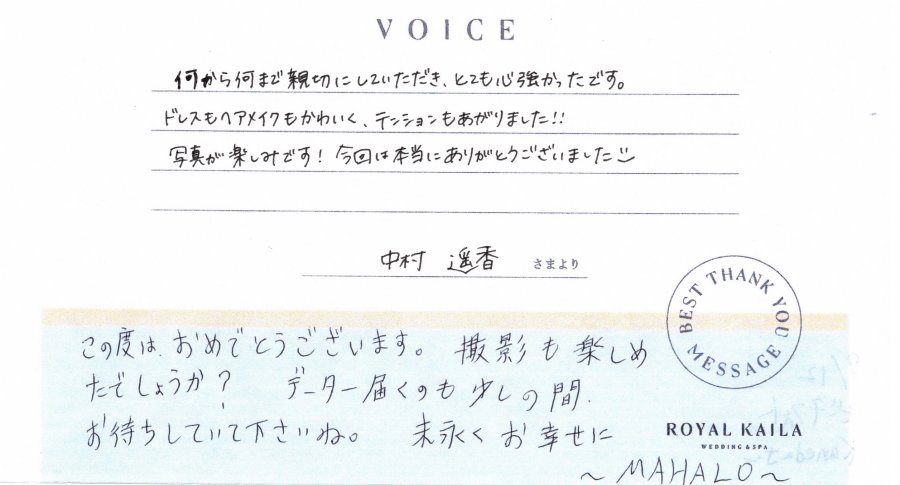 VOICE
何から何まで親切にしていただき、とても心強かったです。
ドレスもヘアメイクもかわいく、テンションもあがりました!!
写真が楽しみです! 今回は本当にありがとうございました
中村 遥香 さまより
BEST THANK YOU MESSAGE
この度は、おめでとうございます。 撮影も楽しめ
たでしょうか? データー届くのも少しの間、
お待ちしていて下さいね。 末永くお幸せに
ROYAL KAILA
WEDDING & SPA
~MAHALO~